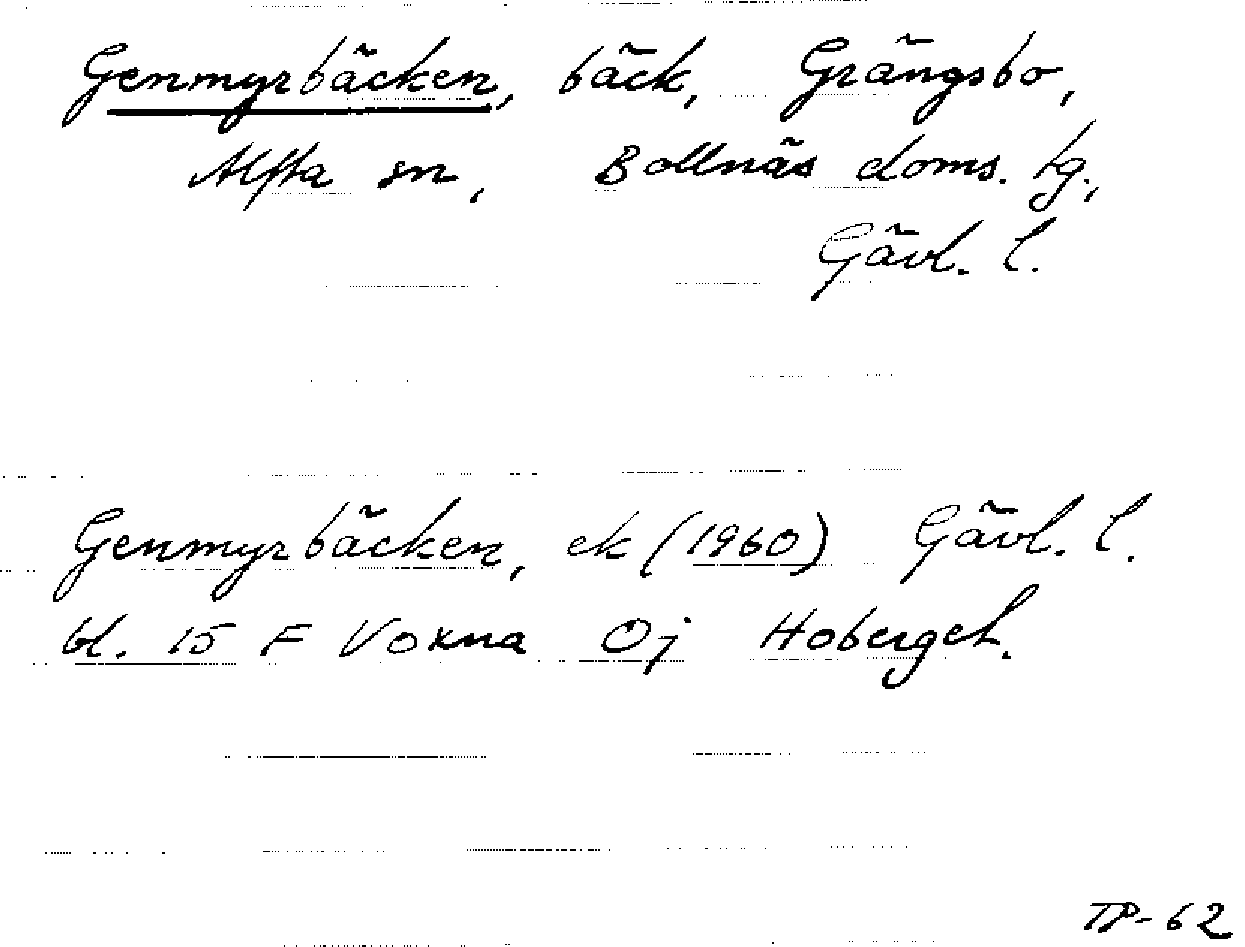 Genmyrbäcken, bäck, Grängsbo,
Alfta sn, Bollnäs doms. tg.,
Gävl. l.
Genmyrbäcken, ek (1960) Gävl. l.
bl. 15 F Voxna Oj
TP-62